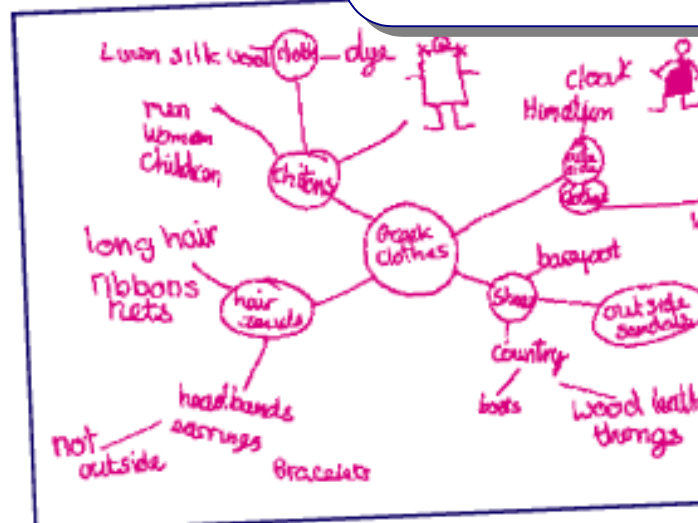 Linen silk wool
cloth
dye
men
Women
Children
chitons
cloak
Himation
outside
clothes
Greek
clothes
long hair
ribbons
nets
hair
jewels
headbands
earrings
Bracelets
not
outside
shoes
barefoot
outside
sandals
country
boots
wood leath
thongs